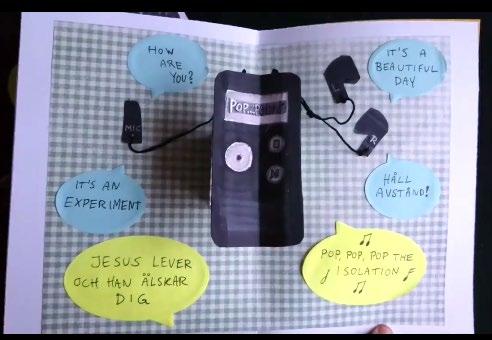 HOW
ARE
YOU?
IT'S A
BEAUTIFUL
DAY
POP...
MIC
L
R
IT'S AN
EXPERIMENT
HÅLL
AVSTÅND!
JESUS LEVER
OCH HAN ÄLSKAR
DIG
POP, POP, POP THE
ISOLATION